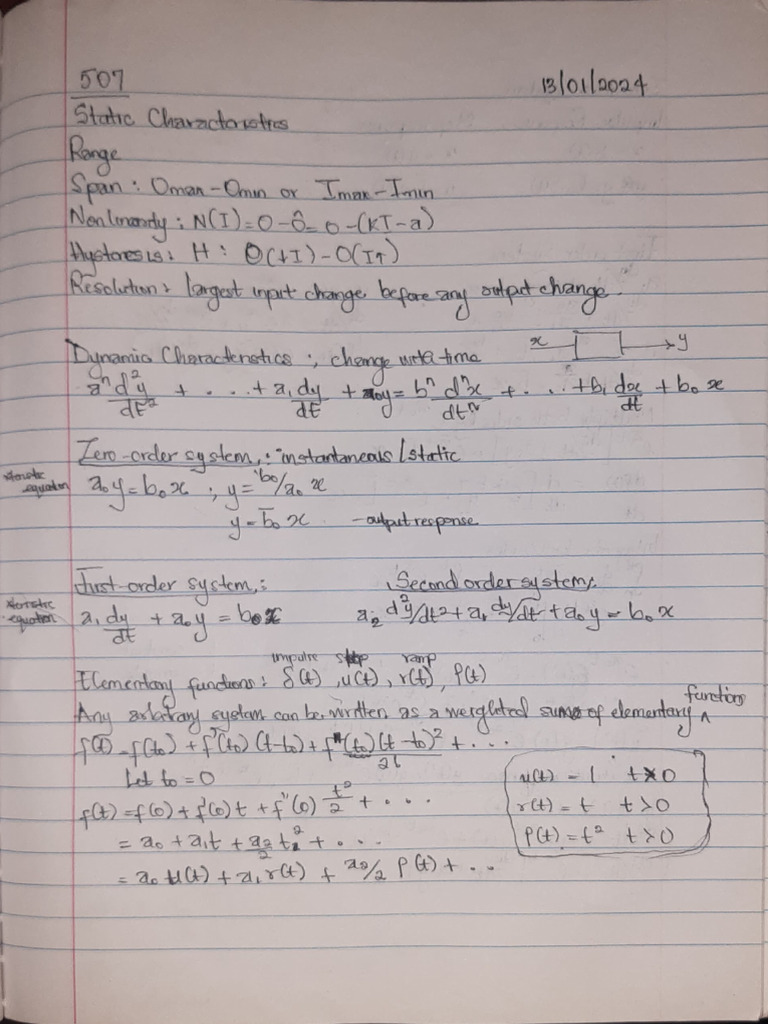 507 13/01/2024
Static Characteristics
Range
Span : Omax - Omin or Imax - Imin
Nonlinearity : N(I) = O - Ô = O - (KI - a)
Hysteresis : H : O(↓I) - O(I↑)
Resolution : largest input change before any output change
x → y
Dynamic Characteristics ; change with time
aⁿ d²y/dt² + . . . + a₁ dy/dt + a₀y = bⁿ dⁿx/dtⁿ + . . . + b₁ dx/dt + b₀ x
Zero-order system, : instantaneous / static
equation a₀y = b₀x ; y = b₀/a₀ x
y = b̄₀ x - output response
First-order system, : Second order system,
equation a₁ dy/dt + a₀y = b₀x a₂ d²y/dt² + a₁ dy/dt + a₀y = b₀x
impulse step ramp
Elementary functions : δ(t), u(t), r(t), ρ(t)
function
Any arbitrary system can be written as a weighted sum of elementary ^
f(t) = f(t₀) + f'(t₀) (t-t₀) + f"(t₀)(t-t₀)²/2! + . . .
Let t₀ = 0
f(t) = f(0) + f'(0)t + f"(0) t²/2 + . . .
= a₀ + a₁t + a₂/2 t² + . . .
= a₀ u(t) + a₁ r(t) + a₂/2 ρ(t) + . .
u(t) = 1 t>0
r(t) = t t>0
ρ(t) = t² t>0